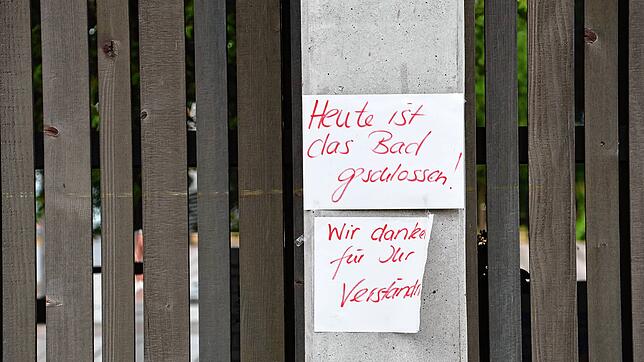 Heute ist
das Bad
geschlossen!
Wir danke
für Ihr
Verständn